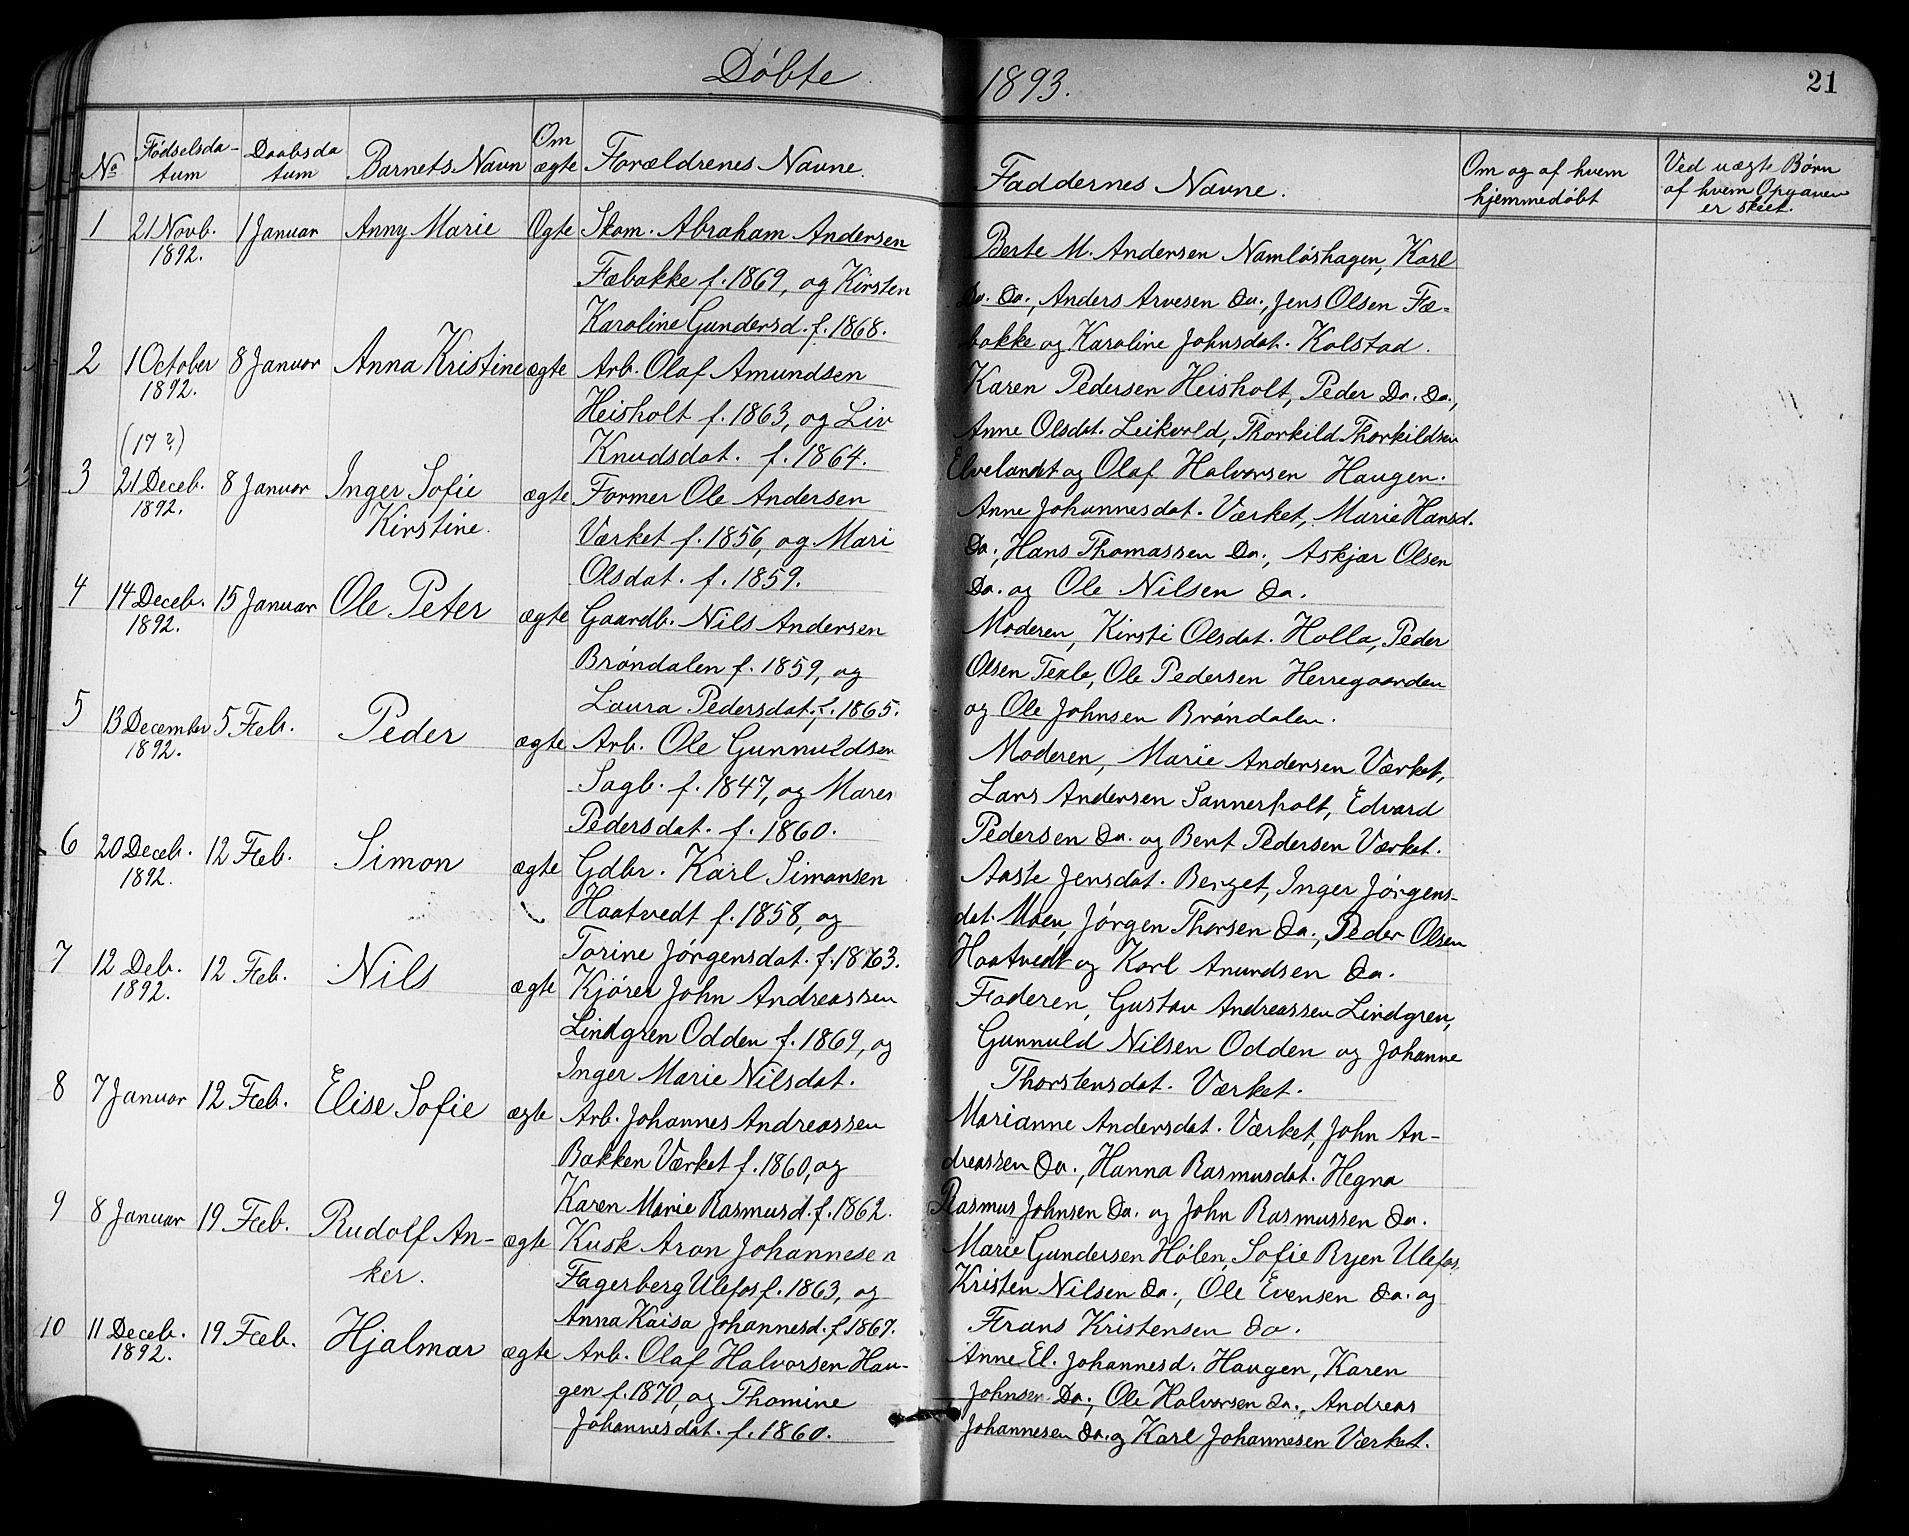 Döbte 1893. 21
No
Födselsda-
tum
Daabsda
tum
Barnets Navn
Om
ægte
Forældrenes Navne.
Faddernes Navne.
Om og af hvem
hjemmedöbt
Ved uægte Börn
af hvem Opgaven
er skeet.
1 21 Novb. 1 Januar Anny Marie Ægte Skom. Abraham Andersen
1892.
Fæbakke f. 1869, og Kirsten
Karoline Gundersd. f. 1868.
Berte M. Andersen Namlöshagen, Karl
Do. Do., Anders Arvesen Do., Jens Olsen Fæ-
bakke og Karoline Johnsdat. Kolstad.
2 1 October 8 Januar Anna Kristine ægte Arb. Olaf Amundsen
1892.
(17?)
Heisholt f. 1863, og Liv
Knudsdat. f. 1864.
Karen Pedersen Heisholt, Peder Do. Do.,
Anne Olsdat. Leikvold, Thorkild Thorkildsen
Elvelandt og Olaf Halvorsen Haugen.
3 21 Deceb. 8 Januar Inger Sofie ægte Former Ole Andersen
1892. Kirstine.
Værket f. 1856, og Mari
Olsdat. f. 1859.
Anne Johannesdat. Værket, Marie Hansd.
Do., Hans Thomassen Do., Askjær Olsen
Do. og Ole Nilsen Do.
4 14 Deceb. 15 Januar Ole Peter ægte Gaardb. Nils Andersen
1892.
Bröndalen f. 1859, og
Laura Pedersdat. f. 1865.
Moderen, Kirsti Olsdat. Holla, Peder
Olsen Texle, Ole Pedersen Herregaarden
og Ole Johnsen Bröndalen.
5 13 December 5 Feb. Peder ægte Arb. Ole Gunnuldsen
1892.
Sagb. f. 1847, og Maren
Pedersdat. f. 1860.
Moderen, Marie Andersen Værket,
Lars Andersen Sannerholt, Edvard
Pedersen Do. og Bent Pedersen Værket.
6 20 Deceb. 12 Feb. Simon ægte Gdbr. Karl Simonsen
1892.
Haatvedt f. 1858, og
Torine Jörgensdat. f. 1863.
Aaste Jensdat. Berget, Inger Jörgens-
dat. Moen, Jörgen Thorsen Do., Peder Olsen
Haatvedt og Karl Anundsen Do.
7 12 Deb. 12 Feb. Nils ægte Kjörer John Andreassen
1892.
Lindgren Odden f. 1869, og
Inger Marie Nilsdat.
Faderen, Gustav Andreassen Lindgren,
Gunnuld Nilsen Odden og Johanne
Thorstensdat. Værket.
8 7 Januar 12 Feb. Elise Sofie ægte Arb. Johannes Andreassen
Bakken Værket f. 1860, og
Karen Marie Rasmusd. f. 1862.
Marianne Andersdat. Værket, John An-
dreassen Do., Hanna Rasmusdat. Hegna
Rasmus Johnsen Do. og John Rasmussen Do.
9 8 Januar 19 Feb. Rudolf An- ægte Kusk Aron Johannesen
ker.
Fagerberg Ulefos f. 1863, og
Anna Kaisa Johannesd. f. 1867.
Marie Gundersen Hölen, Sofie Ryen Ulefos,
Kristen Nilsen Do., Ole Evensen Do. og
Frans Kristensen Do.
10 11 Deceb. 19 Feb. Hjalmar ægte Arb. Olaf Halvorsen Hau-
1892.
gen f. 1870, og Thomine
Johannesdat. f. 1860.
Anne El. Johannesd. Haugen, Karen
Johnsen Do., Ole Halvorsen Do., Andreas
Johannesen Do. og Karl Johannesen Værket.